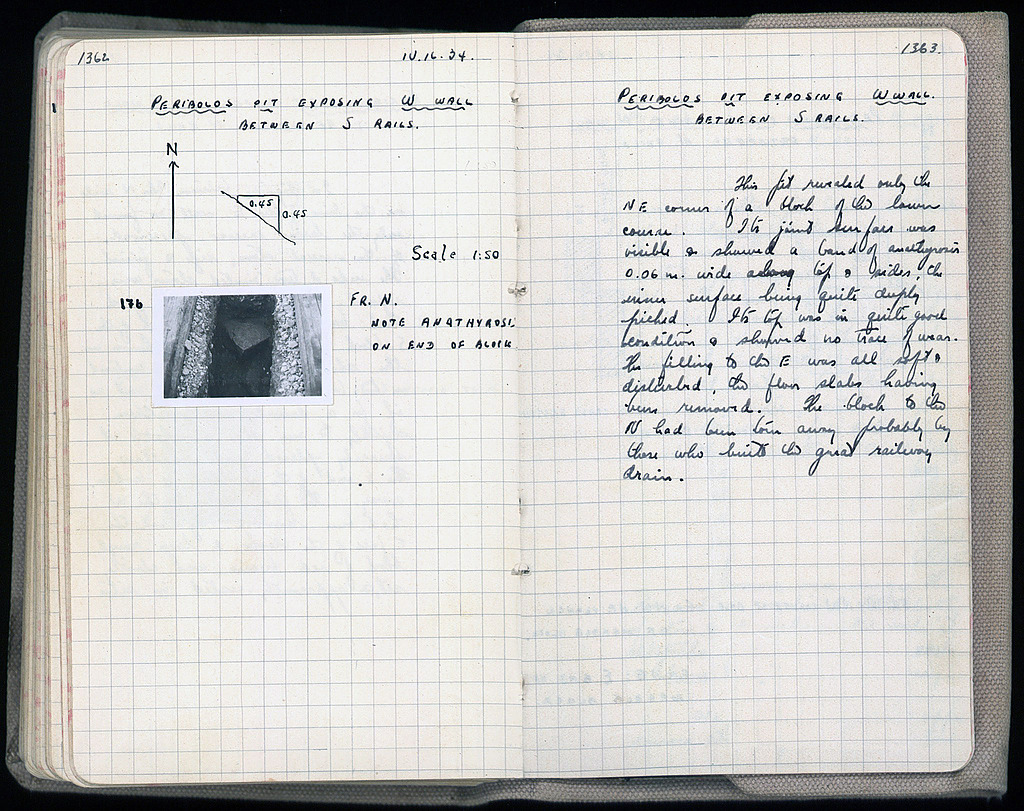 1362
PERIBOLOS PIT EXPOSING W WALL
BETWEEN S RAILS.
N
0.45
0.45
Scale 1:50
176
FR. N.
NOTE ANATHYROSIS
ON END OF BLOCK
1363.
PERIBOLOS PIT EXPOSING W WALL.
BETWEEN S RAILS.
This pit revealed only the
NE corner of a block of the lower
course. Its joint surface was
visible & showed a band of anathyrosis
0.06 m. wide along top & sides, the
inner surface being quite deeply
picked. Its top was in quite good
condition & showed no trace of wear.
The filling to the E was all soft &
disturbed, the floor slabs having
been removed. The block to the
N had been torn away probably by
those who built the great railway
drain.